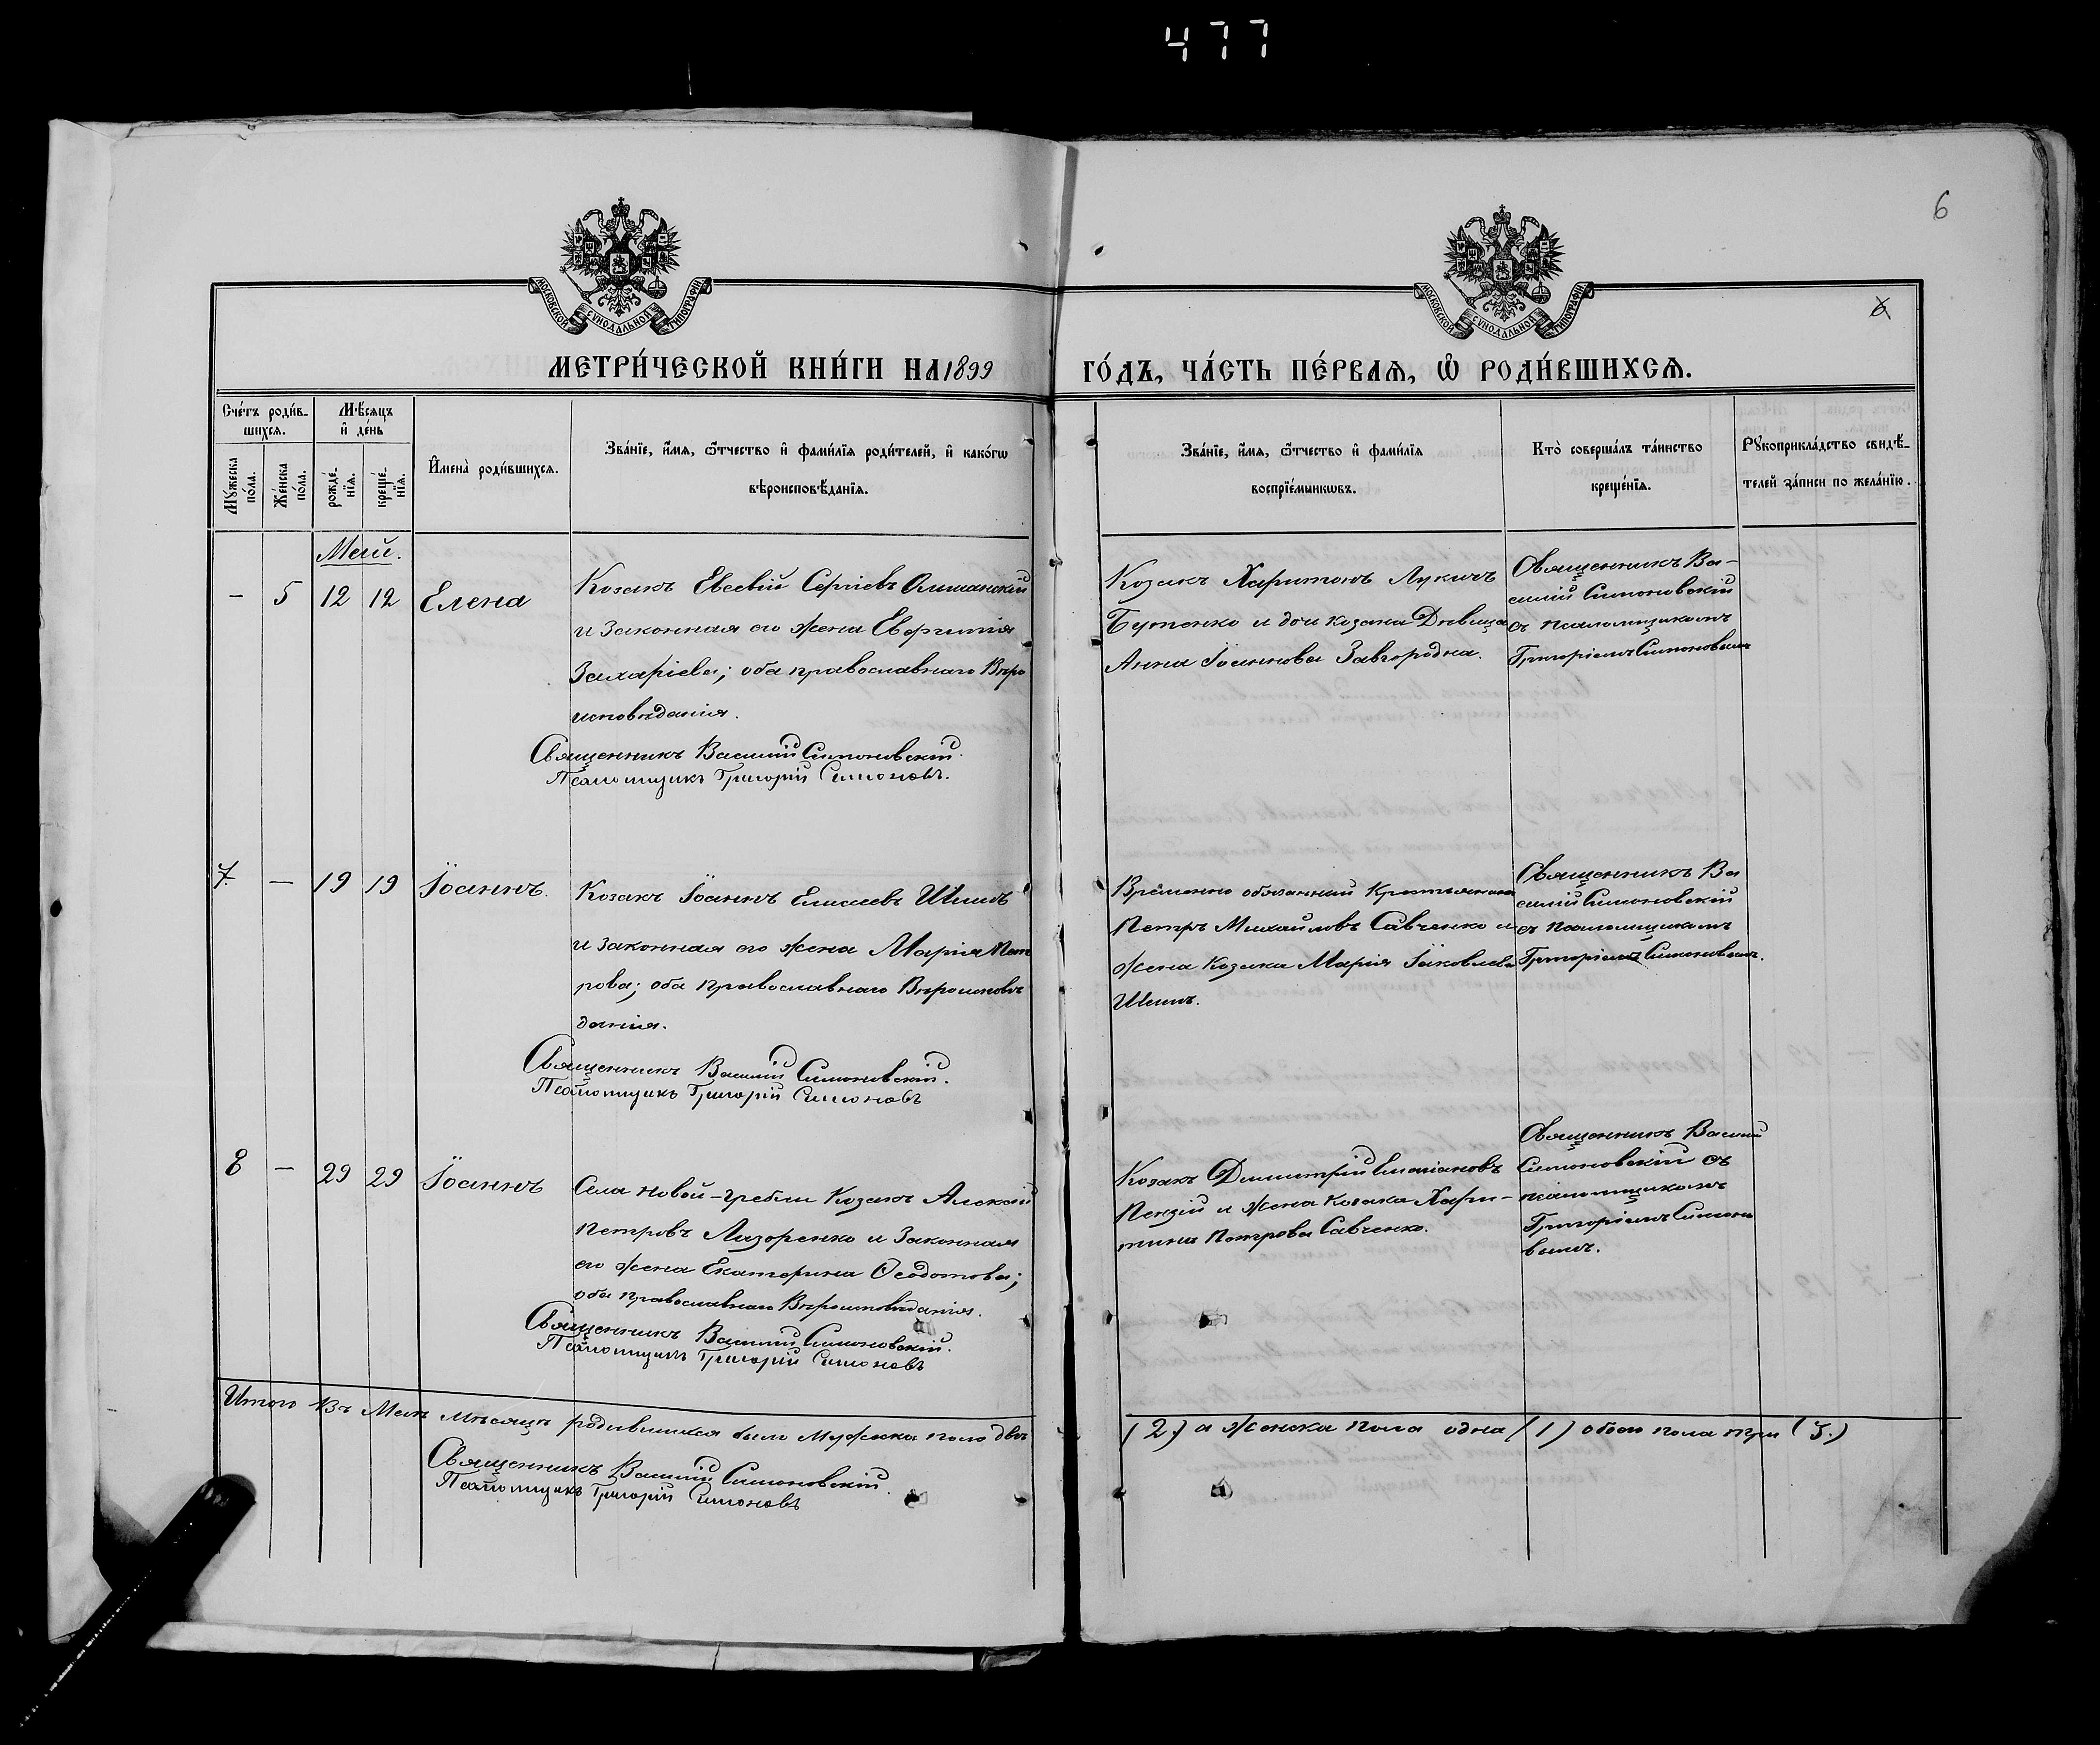 477
6
6
МОСКОВСКОЙ СѴНОДАЛЬНОЙ ТИПОГРАФІИ
МОСКОВСКОЙ СѴНОДАЛЬНОЙ ТИПОГРАФІИ
МЕТРИ́ЧЕСКОЙ КНИ́ГИ НА 1899 ГО́ДЪ, ЧА́СТЬ ПЕ́РВАѦ, Ѡ РОДИ́ВШИХСѦ.
Сче́тъ роди́в-
шихсѧ.
Мꙋ́жеска
по́ла.
Же́нска
по́ла.
Мѣ́сѧцъ
и҆ де́нь
рожде́-
нїѧ.
креще́-
нїѧ.
И҆мена̀ роди́вшихсѧ.
Зва́нїе, и҆́мѧ, ѻ҆́тчество и҆ фами́лїѧ роди́телей, и҆ како́гѡ
вѣроисповѣ́данїѧ.
Зва́нїе, и҆́мѧ, ѻ҆́тчество и҆ фами́лїѧ
воспрїе́мникѡвъ.
Кто̀ соверша́лъ та́инство
креще́нїѧ.
Рꙋкоприкла́дство свидѣ́-
телей за́писи по жела́нїю.
Май.
- 5 12 12 Елена
Козакъ Евсевій Сергіевъ Олишанскій
и законная его жена Евфимія
Захаріева; оба православнаго Веро
исповѣданія.
Священникъ Василій Симоновскій.
Псаломщикъ Григорій Симоновъ.
Козакъ Харитонъ Лукичъ
Бутенко и дочь козака Дѣвица
Анна Іоаннова Завгородна.
Священникъ Ва-
силій Симоновскій
съ псаломщикомъ
Григоріемъ Симоновымъ
7. — 19 19 Іоаннъ.
Козакъ Іоаннъ Елисеевъ
и законная его жена Марія Пет
рова; оба православнаго Вѣроисповѣ
данія.
Священникъ Василій Симоновскій.
Псаломщикъ Григорій Симоновъ
Врѣменно обязанный Крестьянинъ
Петръ Михайловъ Савченко и
жена козака Марія Іаковлева
Священникъ Ва
силій Симоновскій
съ псаломщикомъ
Григоріемъ Симоновымъ.
8 — 29 29 Іоаннъ
Села Новой-гребли Козакъ Алексій
Петровъ Лазоренко и законная
его жена Екатерина Ѳеодотова;
оба православнаго Вѣроисповѣданія.
Священникъ Василій Симоновскій.
Псаломщикъ Григорій Симоновъ
Козакъ Димитрій
и жена козака Хари-
тина Петрова Савченко.
Священникъ Василій
Симоновскій съ
псаломщикомъ
Григоріемъ Симоно
вымъ.
Итого въ Маѣ мѣсяцѣ родившихся было Мужска пола двѣ
(2) а Женска пола одна (1) обоего пола три (3.)
Священникъ Василій Симоновскій.
Псаломщикъ Григорій Симоновъ